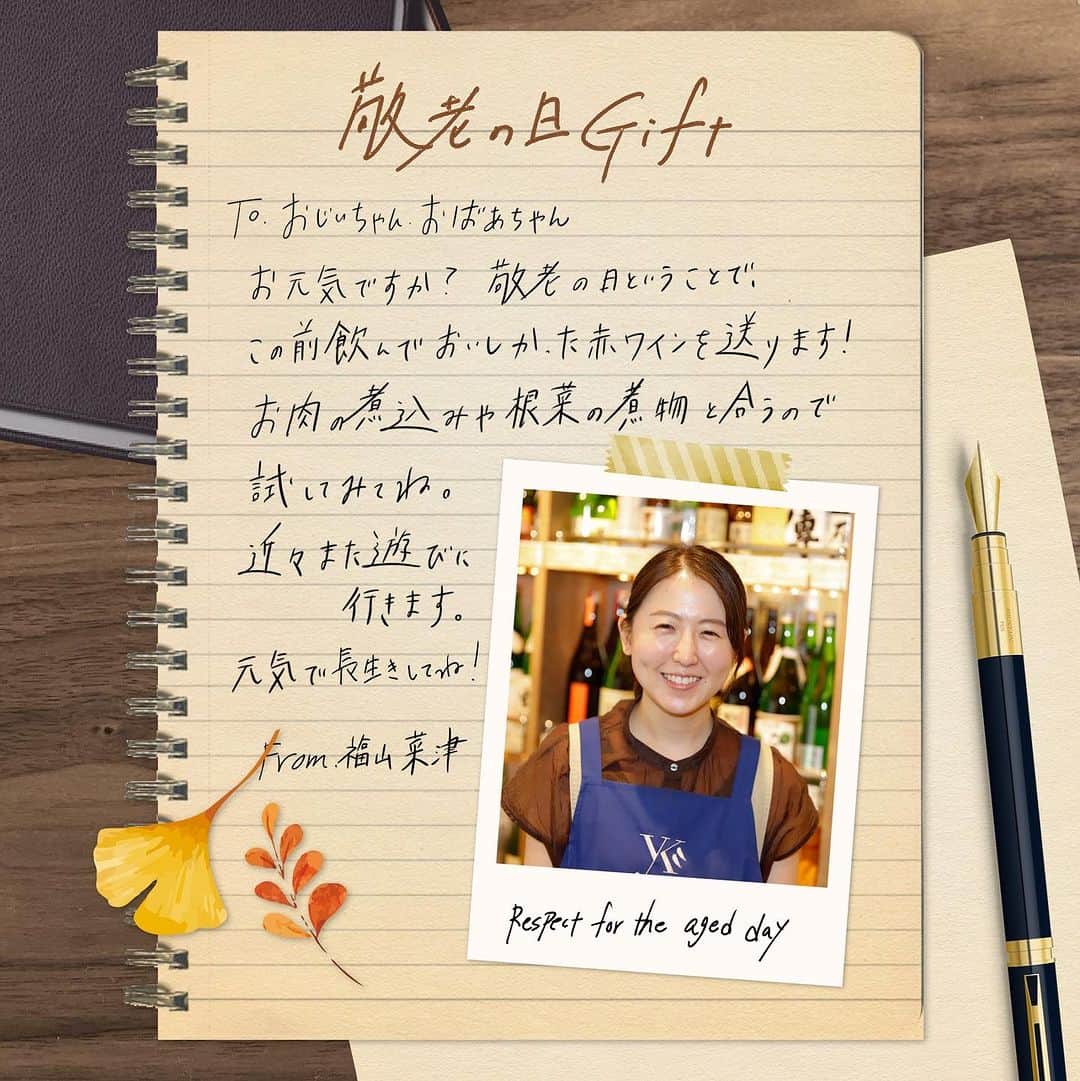 敬老の日Gift
To. おじいちゃん.おばあちゃん
お元気ですか? 敬老の日ということで、
この前飲んでおいしかった赤ワインを送ります!
お肉の煮込みや根菜の煮物と合うので
試してみてね。
近々また遊びに
行きます。
元気で長生きしてね!
From.福山菜津
Respect for the aged day